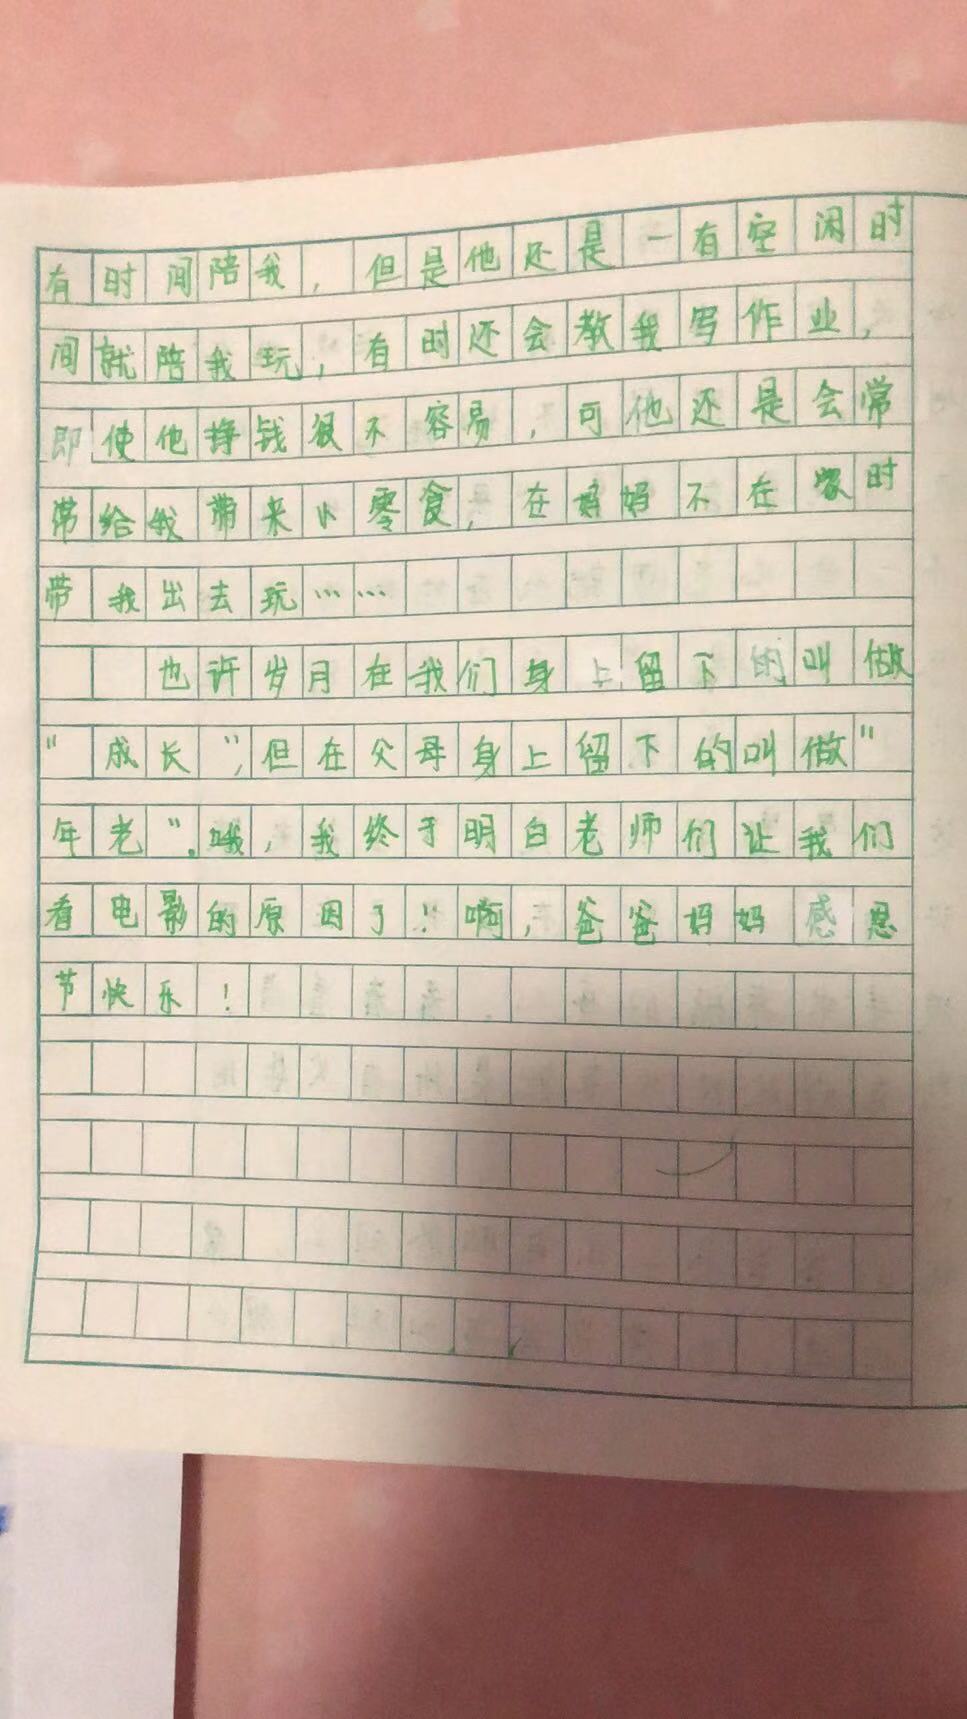 有时间陪我，但是他还是一有空闲时
间就陪我玩，有时还会教我写作业，
即使他挣钱很不容易，可他还是会常
带给我带来小零食，在妈妈不在家时
带我出去玩……
也许岁月在我们身上留下的叫做
“成长”，但在父母身上留下的叫做“
年老”。哦，我终于明白老师们让我们
看电影的原因了！啊，爸爸妈妈感恩
节快乐！